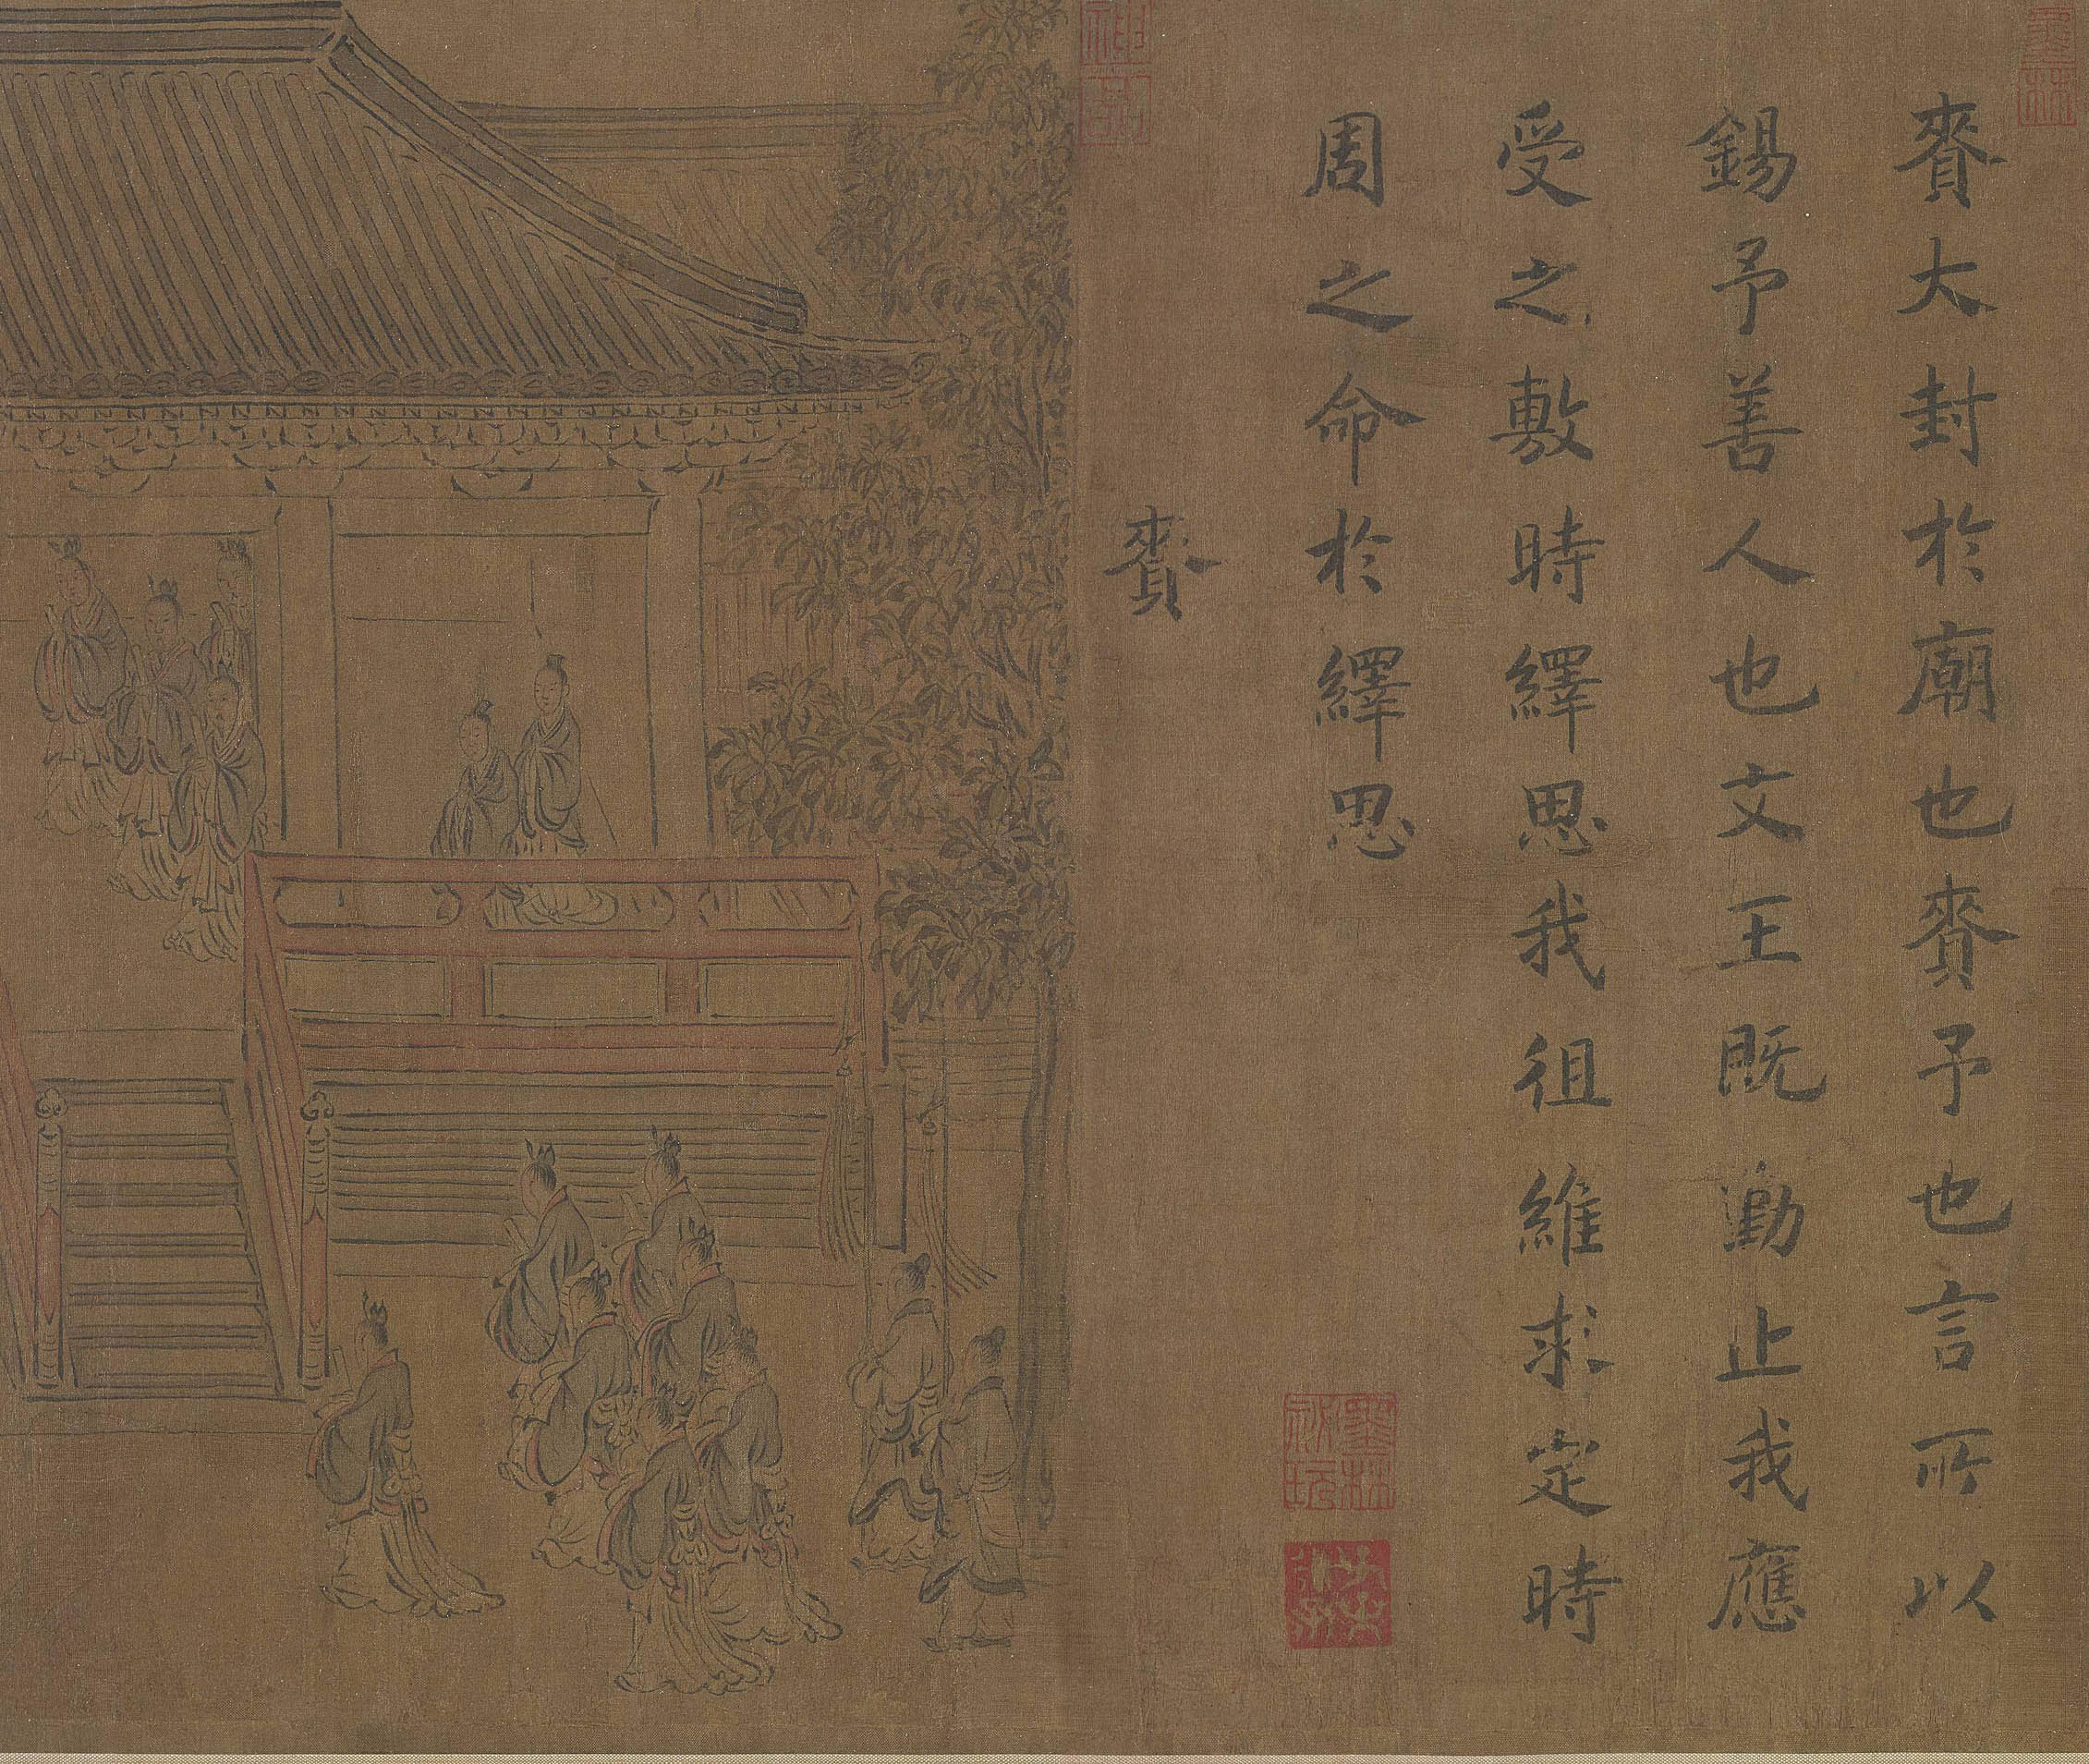 賚大封於廟也賚予也言所以
錫予善人也文王既勤止我應
受之敷時繹思我徂維求定時
周之命於繹思
賚
墨林
墨林祕玩